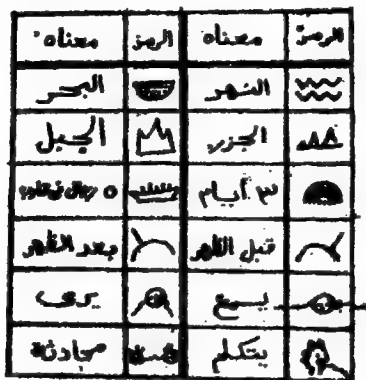 الرمز معناه الرمز معناه
النهر البحر
الجزر الجبل
٣ أيام ٥ رجال في
قبل الظهر بعد الظهر
يسمع يرى
يتكلم محادثة